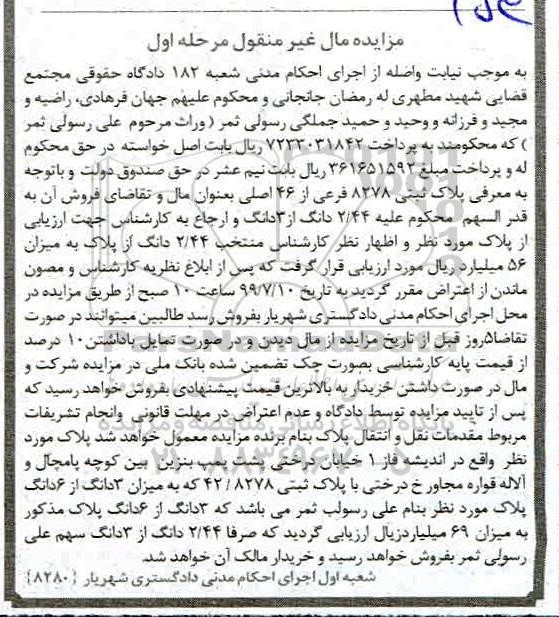 مزایده مال غیر منقول مرحله اول
به موجب نیابت واصله از اجرای احکام مدنی شعبه ۱۸۲ دادگاه حقوقی مجتمع
قضایی شهید مطهری له رمضان جانجانی و محکوم علیهم جهان فرهادی، راضیه و
مجید و فرزانه و وحید و حمید جملگی رسولی ثمر ( وراث مرحوم علی رسولی ثمر
) که محکومند به پرداخت ۷۲۳۳۰۳۱۸۴۲ ریال بابت اصل خواسته در حق محکوم
له و پرداخت مبلغ ۳۶۱۶۵۱۵۹۲ ریال بابت نیم عشر در حق صندوق دولت و باتوجه
به معرفی پلاک ثبتی ۸۲۷۸ فرعی از ۴۶ اصلی بعنوان مال و تقاضای فروش آن به
قدر السهم محکوم علیه ۲/۴۴ دانگ از۳دانگ و ارجاع به کارشناس جهت ارزیابی
از پلاک مورد نظر و اظهار نظر کارشناس منتخب ۲/۴۴ دانگ از پلاک به میزان
۵۶ میلیارد ریال مورد ارزیابی قرار گرفت که پس از ابلاغ نظریه کارشناس و مصون
ماندن از اعتراض مقرر گردید به تاریخ ۹۹/۷/۱۰ ساعت ۱۰ صبح از طریق مزایده در
محل اجرای احکام مدنی دادگستری شهریار بفروش رسد طالبین میتوانند در صورت
تقاضا۵روز قبل از تاریخ مزایده از مال دیدن و در صورت تمایل باداشتن۱۰ درصد
از قیمت پایه کارشناسی بصورت چک تضمین شده بانک ملی در مزایده شرکت و
مال در صورت داشتن خریدار به بالاترین قیمت پیشنهادی بفروش خواهد رسید که
پس از تایید مزایده توسط دادگاه و عدم اعتراض در مهلت قانونی وانجام تشریفات
مربوط مقدمات نقل و انتقال پلاک بنام برنده مزایده معمول خواهد شد پلاک مورد
نظر واقع در اندیشه فاز ۱ خیابان درختی پشت پمپ بنزین بین کوچه پامچال و
آلاله قواره مجاور خ درختی با پلاک ثبتی ۸۲۷۸ / ۴۲ که به میزان ۳دانگ از ۶دانگ
پلاک مورد نظر بنام علی رسولب ثمر می باشد که ۳دانگ از ۶دانگ پلاک مذکور
به میزان ۶۹ میلیاردریال ارزیابی گردید که صرفا ۲/۴۴ دانگ از ۳دانگ سهم علی
رسولی ثمر بفروش خواهد رسید و خریدار مالک آن خواهد شد.
شعبه اول اجرای احکام مدنی دادگستری شهریار {۸۲۸۰}
ParsNamadData
پایگاه اطلاع رسانی مناقصه و مزایده
۰۲۱-۸۸۳۴۹۶۷۰-۵